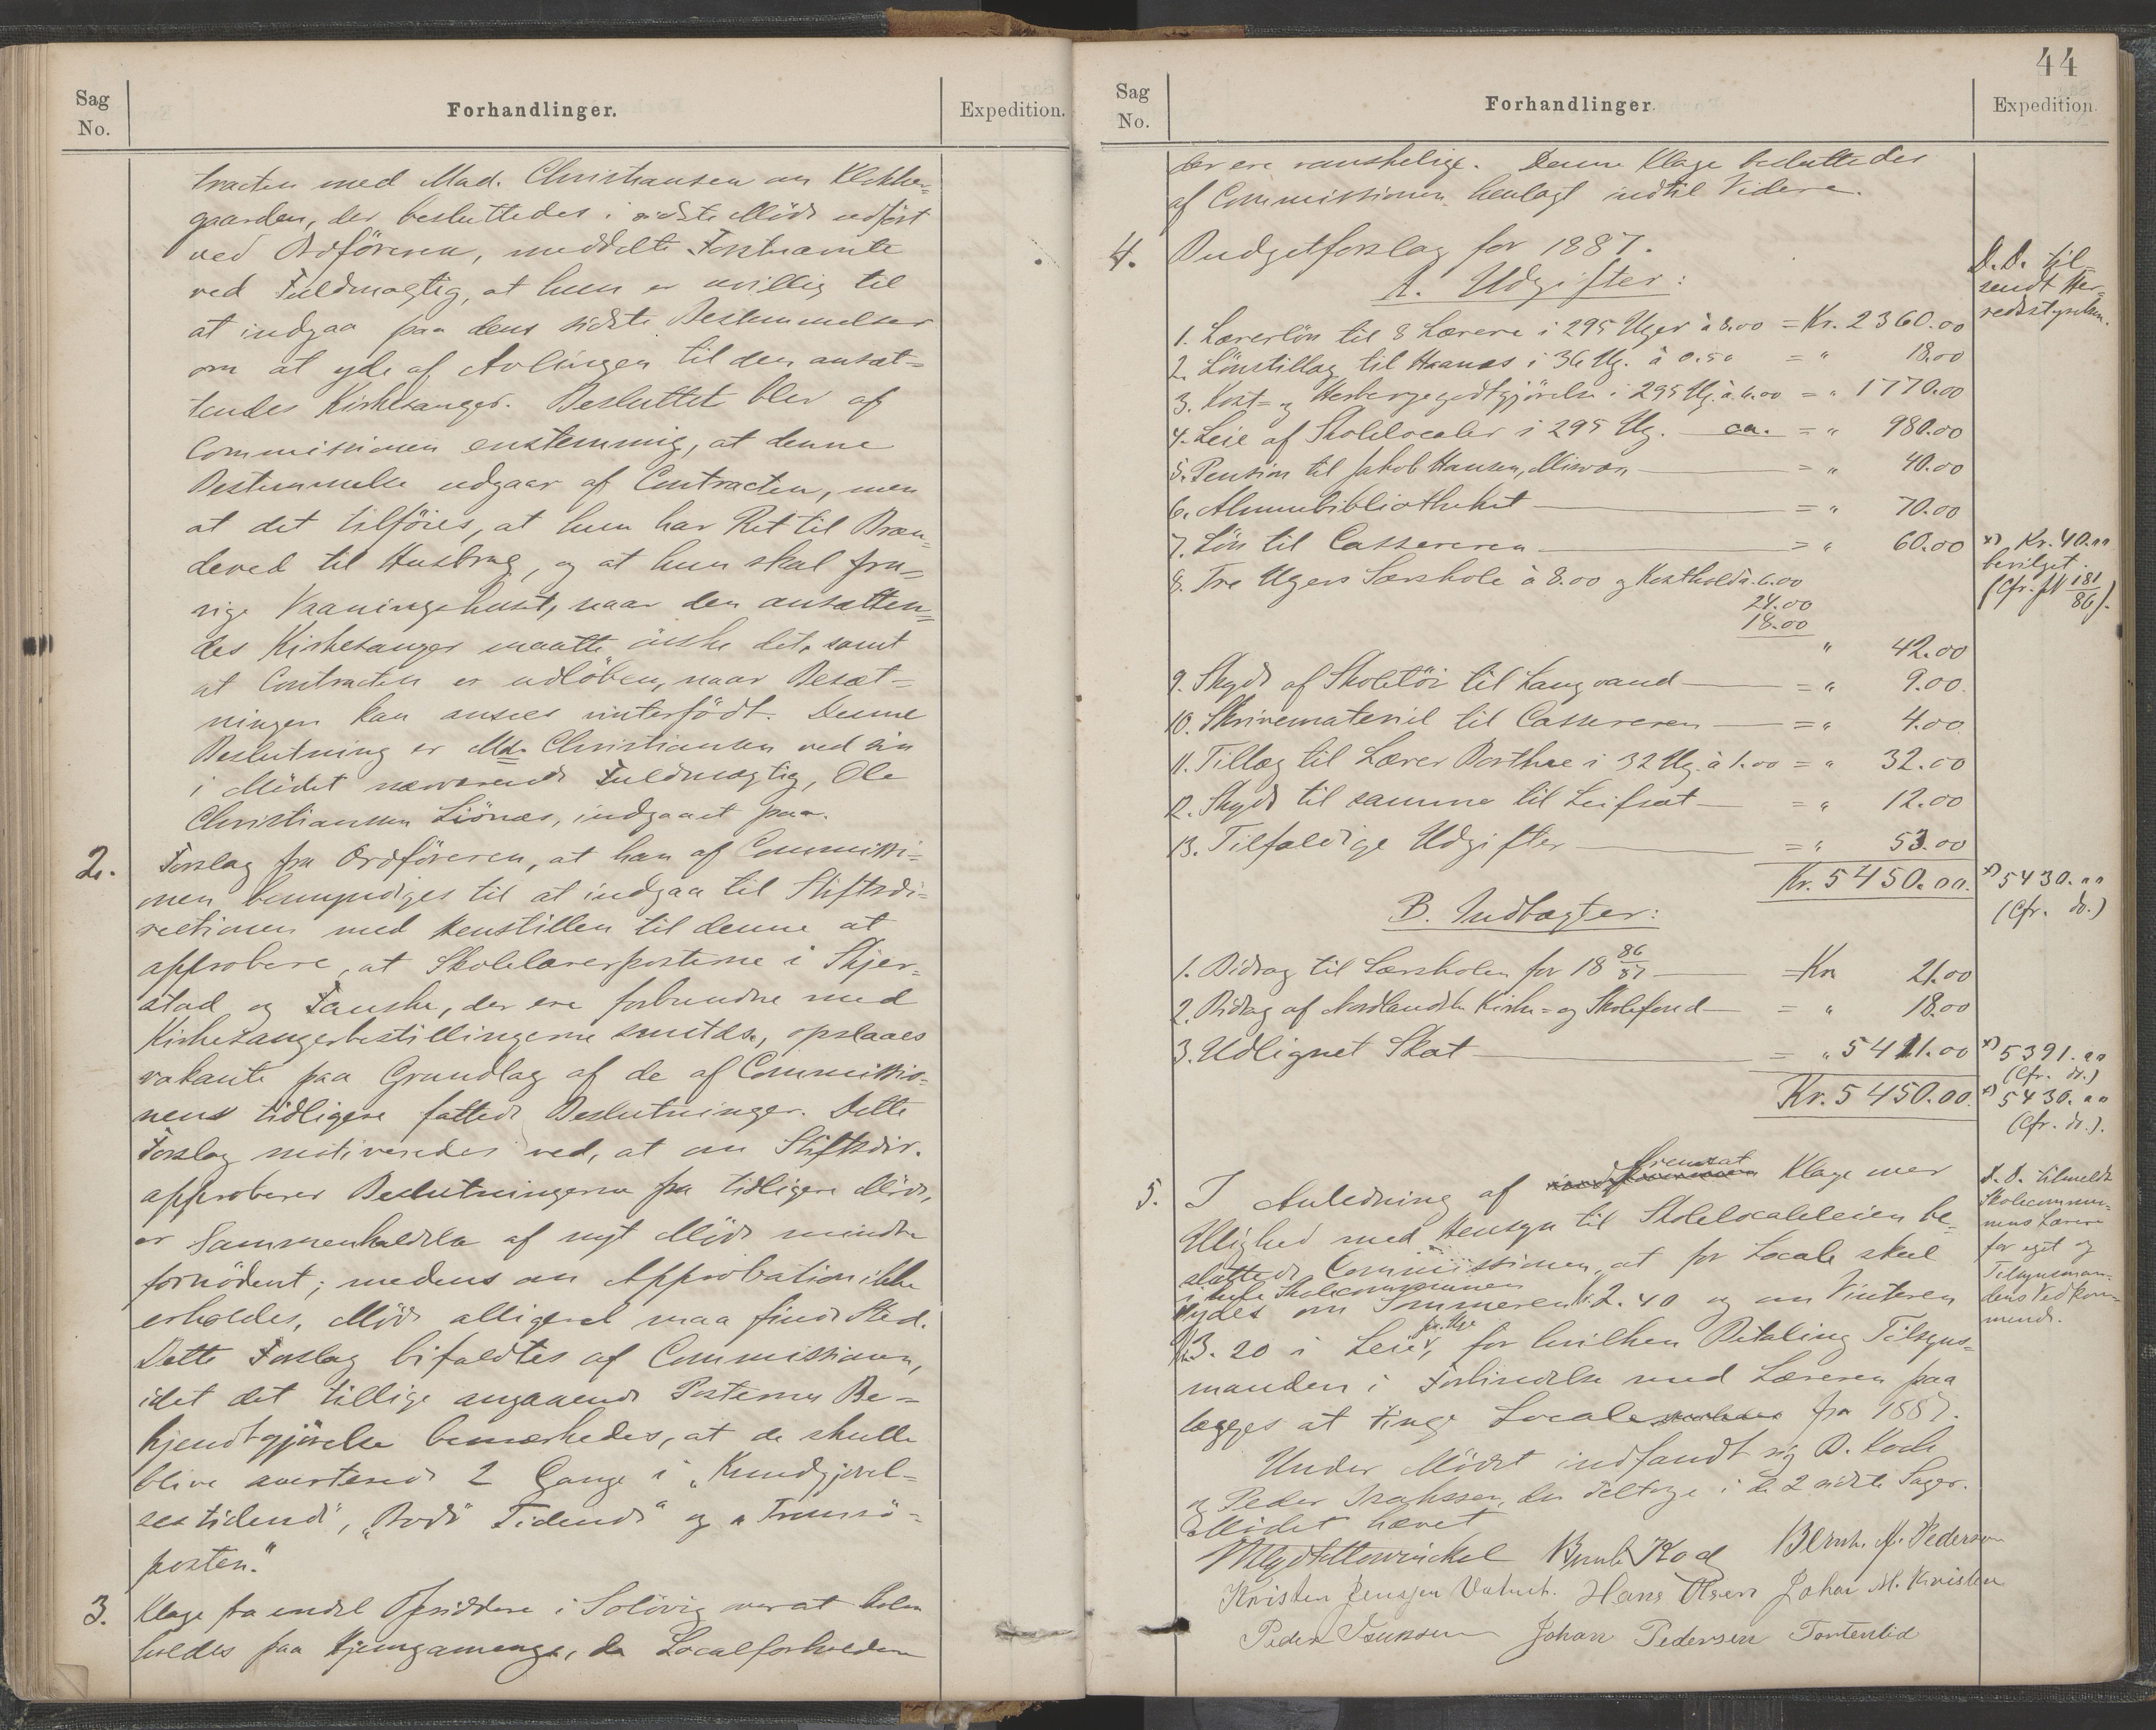 Sag No.
Forhandlinger.
Expedition.
tracten med Mad. Christiansen om Klokker-
gaarden, der besluttedes i sidste Möde udfört
ved Ordföreren, meddelte Forstnævnte
ved Fuldmægtig, at hun er uvillig til
at indgaa paa dens sidste Bestemmelser
om at yde af Avlingen til den ansæt-
tendes Kirkesanger. Besluttet blev af
Commissionen enstemmig, at denne
Bestemmelse udgaar af Contracten, men
at det tilföies, at hun har Ret til Bræn-
deved til Husbrug, og at hun skal fra-
vige Vaaningshuset, naar den ansætten-
des Kirkesanger maatte önske det, samt
at Contracten er udlöben, naar Besæt-
ningen kan ansees vinterfödt. Denne
Beslutning er Md. Christiansen ved sin
i Mödet nærværende Fuldmægtig, Ole
Christiansen Liönæs, indgaaet paa.
2. Forslag fra Ordföreren, at han af Commissi-
onen bemyndiges til at indgaa til Stiftsdi-
rectionen med Henstillen til denne at
approbere, at Skolelærerposterne i Skjer-
stad og Fauske, der ere forbundne med
Kirkesangerbestillingerne smstds., opslaaes
vakante paa Grundlag af de af Commissio-
nens tidligere fattede Beslutninger. Dette
Forslag motiveredes ved, at om Stiftsdir.
approberer Beslutningerne fra tidligere Möde,
er Sammenholdelse af nyt Möde mindre
fornödent; medens om Approbation ikke
erholdes, Möde alligevel maa finde Sted.
Dette Forslag bifaldtes af Commissionen,
idet det tillige angaaende Posternes Be-
kjendtgjörelse bemærkedes, at de skulle
blive averterede 2 Gange i „Kundgjörel-
sestidende", „Bodö Tidende" og „Tromsö-
posten."
3. Klage fra endel Opsiddere i Solövig over at Skolen
holdes paa Kjemgamenge, da Localforholdene
44
Sag No.
Forhandlinger.
Expedition.
der ere vanskelige. Denne Klage besluttedes
af Commissionen henlagt indtil Videre.
4. Budgetforslag for 1887.
D. D. til-
sendt Her-
redsstyrelsen.
A. Udgifter:
1. Lærerlön til 8 Lærere i 295 Uger à 8.00 = Kr. 2360.00
2. Lönstillæg til Haanæs i 36 Ug. à 0.50 = " 18.00
3. Kost- og Herbergegodtgjörelse i 295 Ug. à 6.00 = " 1770.00
4. Leie af Skolelocaler i 295 Ug. ca. = " 980.00
5. Pension til Jakob Hansen, = " 40.00
6. Almuebibliotheket = " 70.00
7. Lön til Cassereren = " 60.00
x) Kr. 40.00
bevilget.
(Cfr. 181/86).
8. Tre Ugers Særskole à 8.00 og Kosthold à 6.00
24.00
18.00
" 42.00
9. Skyds af Skoletöi til Langvand = " 9.00
10. Skrivemateriel til Cassereren = " 4.00
11. Tillæg til Lærer Dorthæe i 32 Ug. à 1.00 = " 32.00
12. Skyds til samme til Leifsæt = " 12.00
13. Tilfældige Udgifter = " 53.00
Kr. 5450.00.
x) 5430.00
(Cfr. do.)
B. Indtægter:
1. Bidrag til Særskolen for 18 86/87 = Kr. 21.00
2. Bidrag af Nordlandske Kirke- og Skolefond = " 18.00
3. Udlignet Skat = " 5411.00
x) 5391.00
(Cfr. do.)
Kr. 5450.00.
x) 5430.00
(Cfr. do.).
5. I Anledning af fremsat Klage over
Ulighed med Hensyn til Skolelocaleleien be-
sluttede Commissionen, at for Locale skal
i hele Skolecommunen
ydes om Sommeren Kr. 2.40 og om Vinteren
Kr. 3.20 i Leie pr. Uge, for hvilken Betaling Tilsyns-
manden i Forbindelse med Læreren paa
lægges at tinge Locale fra 1887.
D. D. tilmeldt
Skolecommu-
nens Lærere
for eget og
Tilsynsman-
dens Vedkom-
mende.
Under Mödet indfandt sig B. Koch
og Peder Isaksen, der deltoge i de 2 sidste Sager.
Mödet hævet
Bernt Kog Bernh. A. Pedersen
Kristen Jensen Vatnet. Hans Olsen Johan M. Kristen
Peder Isaksen Johan Pedersen Tortenlid